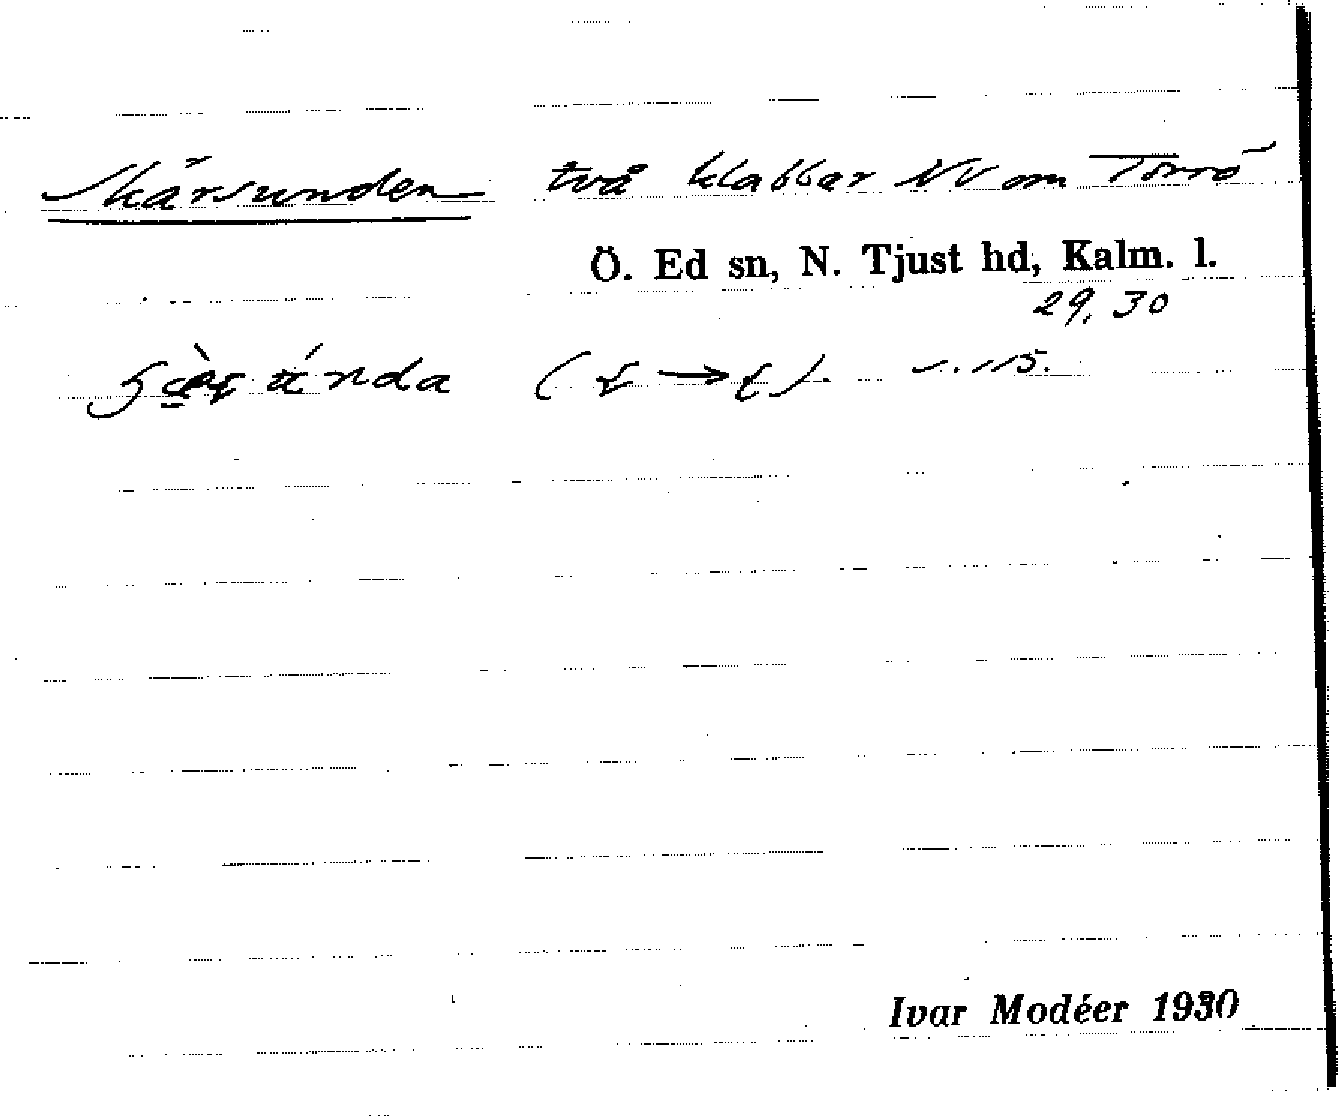 Skärsunden två klabbar NV om Torrö
Ö. Ed sn, N. Tjust hd, Kalm. l.
29, 30
s. 115.
Ivar Modéer 1930